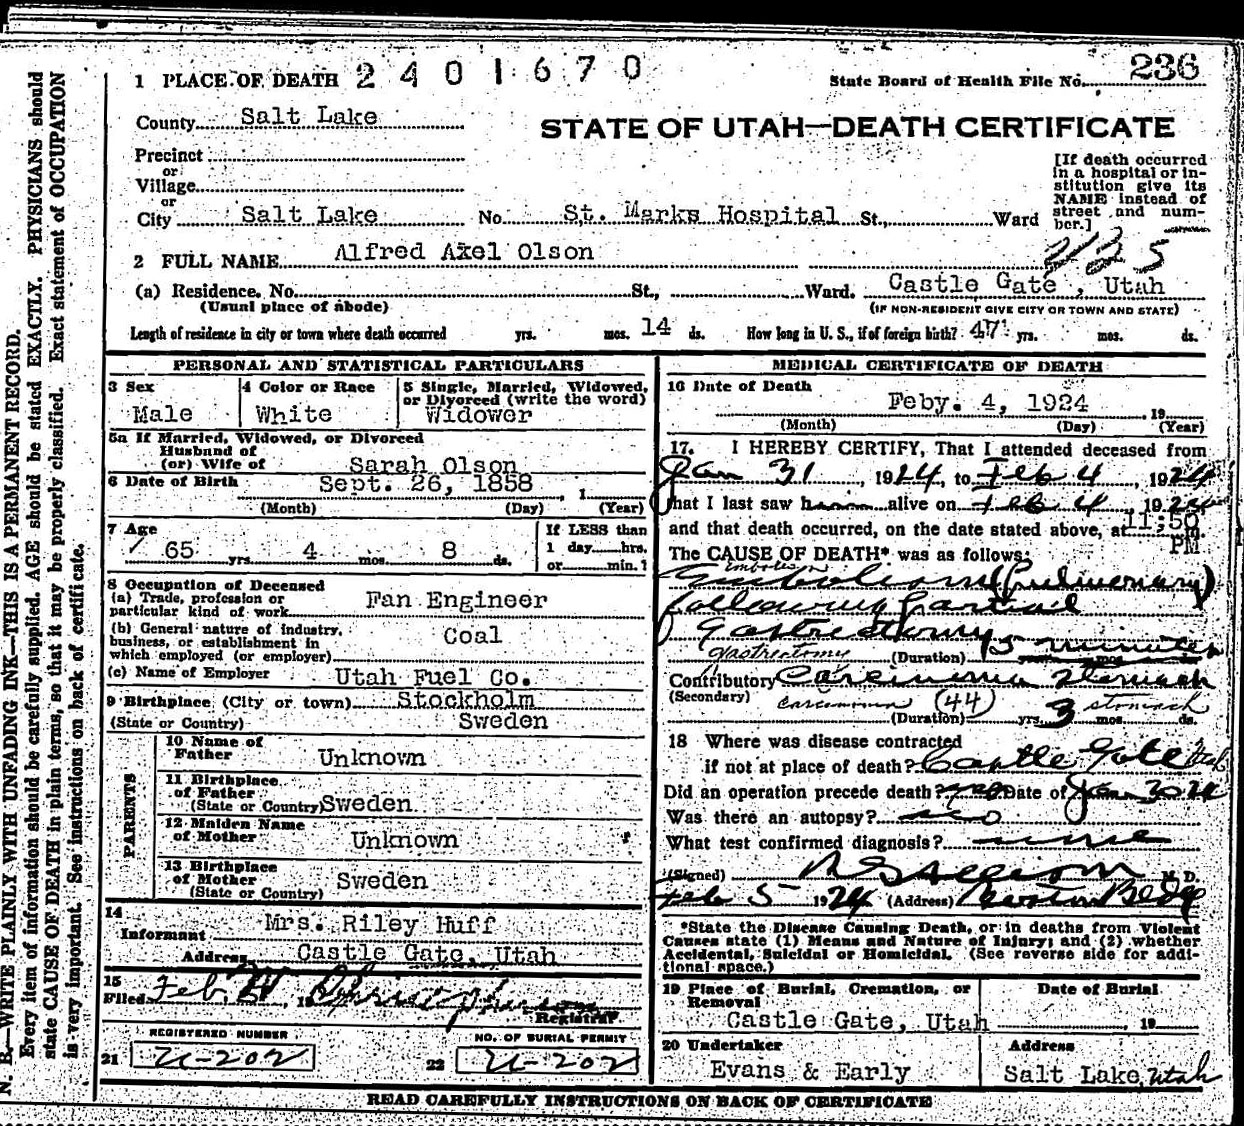 1 PLACE OF DEATH 2401670
State Board of Health File No. 236
County Salt Lake
STATE OF UTAH—DEATH CERTIFICATE
Precinct
or
Village
or
City Salt Lake No. St. Marks Hospital St., Ward
[If death occurred
in a hospital or in-
stitution give its
NAME instead of
street and num-
ber.]
2 FULL NAME Alfred Axel Olson
(a) Residence. No. St., Ward. Castle Gate, Utah
(Usual place of abode)
(IF NON-RESIDENT GIVE CITY OR TOWN AND STATE)
Length of residence in city or town where death occurred yrs. mos. 14 ds. How long in U. S., if of foreign birth? 47 yrs. mos. ds.
PERSONAL AND STATISTICAL PARTICULARS
3 Sex
Male
4 Color or Race
White
5 Single, Married, Widowed,
or Divorced (write the word)
Widower
5a If Married, Widowed, or Divorced
Husband of
(or) Wife of Sarah Olson
6 Date of Birth Sept. 26, 1858, 1
(Month) (Day) (Year)
7 Age
65 yrs 4 mos. 8 ds.
If LESS than
1 day hrs.
or min.?
8 Occupation of Deceased
(a) Trade, profession or
particular kind of work Fan Engineer
(b) General nature of industry,
business, or establishment in
which employed (or employer) Coal
(c) Name of Employer Utah Fuel Co.
9 Birthplace (City or town) Stockholm
(State or Country) Sweden
PARENTS
10 Name of
Father Unknown
11 Birthplace
of Father
(State or Country) Sweden
12 Maiden Name
of Mother Unknown
13 Birthplace
of Mother
(State or Country) Sweden
14
Informant Mrs. Riley Huff
Address Castle Gate, Utah
15
Filed Feb.
Registrar
REGISTERED NUMBER
21 U-202
NO. OF BURIAL PERMIT
22 U-202
MEDICAL CERTIFICATE OF DEATH
16 Date of Death
Feby. 4, 1924, 19
(Month) (Day) (Year)
17. I HEREBY CERTIFY, That I attended deceased from
Jan 31, 1924, to Feb 4, 1924
that I last saw him alive on Feb 4, 1924
and that death occurred, on the date stated above, at 11:50 m.
PM
The CAUSE OF DEATH* was as follows:
Embolism
Embolism (Pulmonary)
following partial
Gastrectomy
gastrectomy (Duration) 15 minutes
Contributory Carcinoma Stomach
(Secondary) carcinoma (44) stomach
(Duration) yrs. 3 mos. ds.
18 Where was disease contracted
if not at place of death? Castle Gate Utah
Did an operation precede death? yes Date of Jan 30 24
Was there an autopsy? no
What test confirmed diagnosis? none
(Signed) M. D.
Feb 5 1924 (Address) Boston Bldg
*State the Disease Causing Death, or in deaths from Violent
Causes state (1) Means and Nature of Injury; and (2) whether
Accidental, Suicidal or Homicidal. (See reverse side for addi-
tional space.)
19 Place of Burial, Cremation, or
Removal
Castle Gate, Utah
Date of Burial
, 19
20 Undertaker
Evans & Early
Address
Salt Lake, Utah
READ CAREFULLY INSTRUCTIONS ON BACK OF CERTIFICATE
N. B.—WRITE PLAINLY WITH UNFADING INK—THIS IS A PERMANENT RECORD.
Every item of information should be carefully supplied. AGE should be stated EXACTLY. PHYSICIANS should
state CAUSE OF DEATH in plain terms, so that it may be properly classified. Exact statement of OCCUPATION
is very important. See instructions on back of certificate.